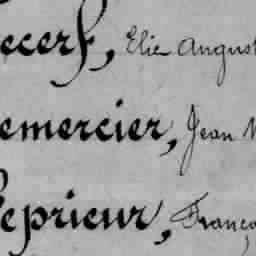 ecerf, Elie August
emercier, Jean
eprieur, França